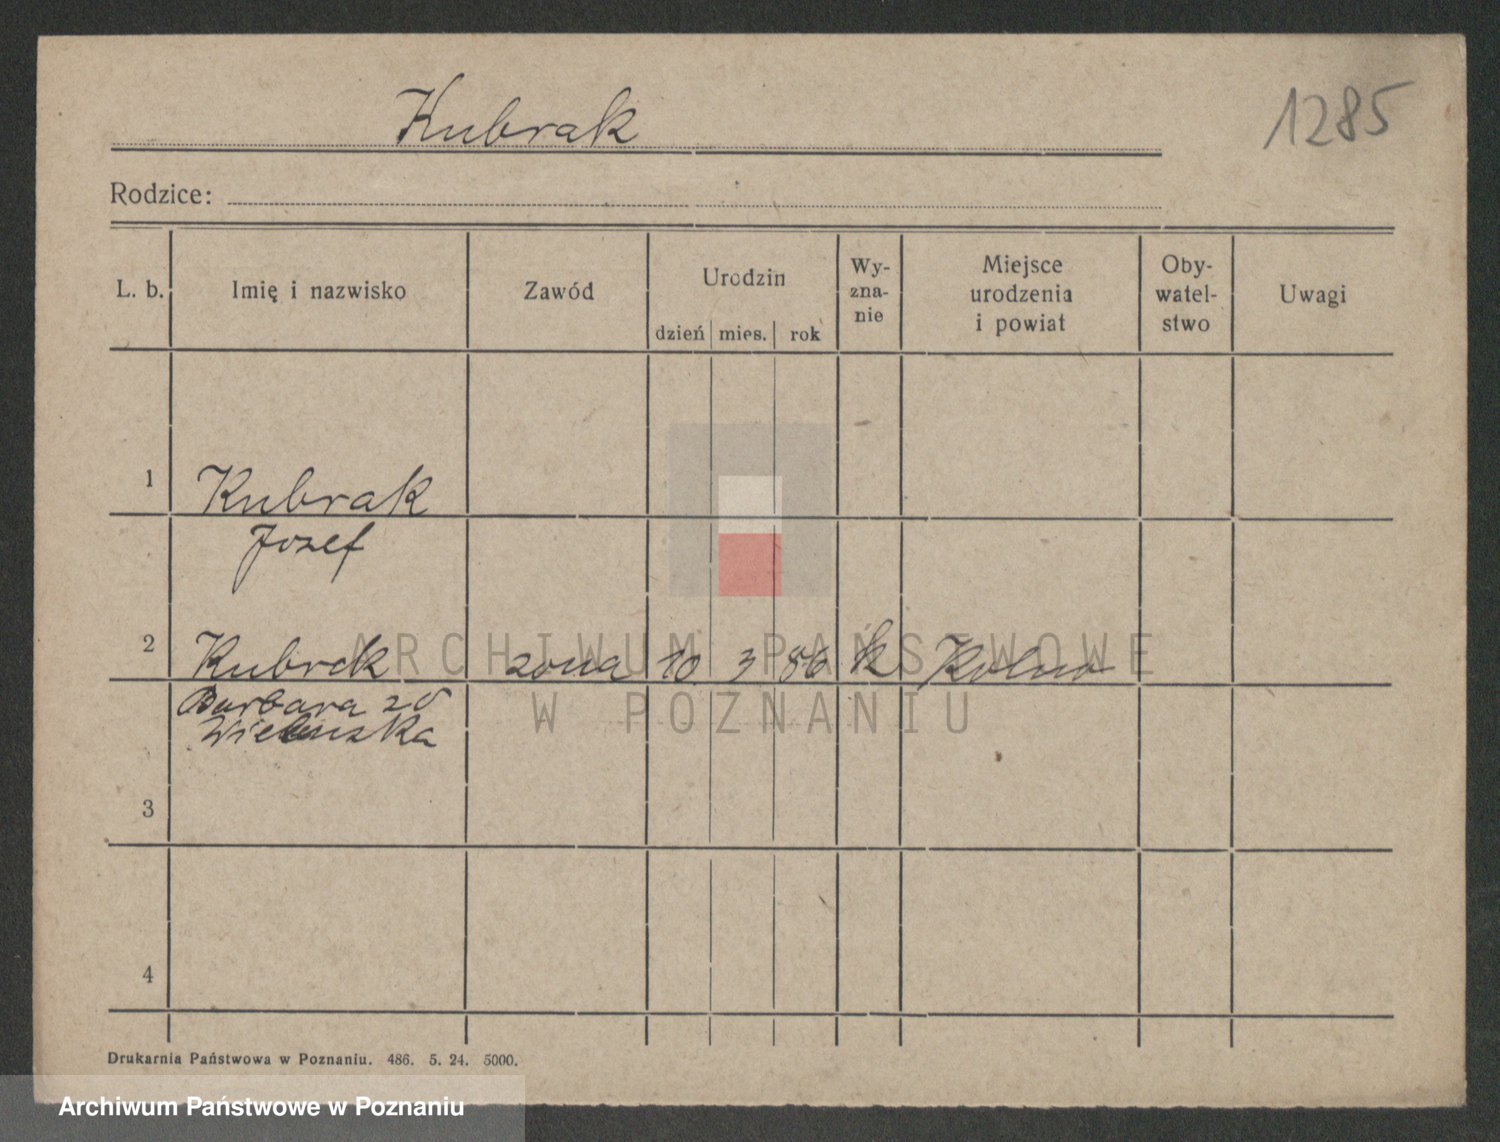 Kubrak
1285
Rodzice:
L. b.
Imię i nazwisko
Zawód
Urodzin
dzień
mies.
rok
Wy-
zna-
nie
Miejsce
urodzenia
i powiat
Oby-
watel-
stwo
Uwagi
1
Kubrak
Jozef
2
Kubrak
zona
10
3
86
k
Kolno
Barbara zd
3
4
ARCHIWUM PAŃSTWOWE
W POZNANIU
Drukarnia Państwowa w Poznaniu. 486. 5. 24. 5000.
Archiwum Państwowe w Poznaniu